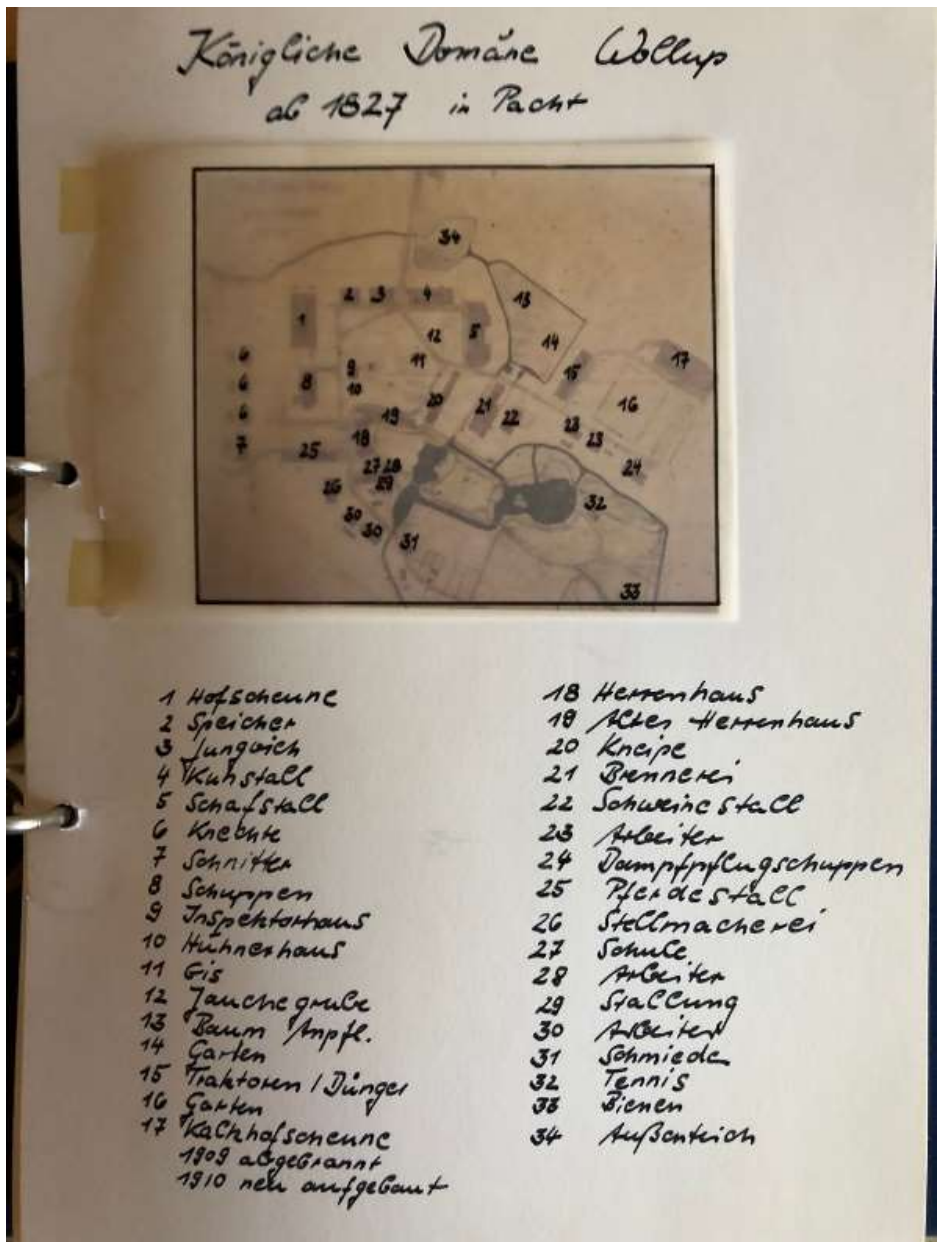 Königliche Domäne Wollup
ab 1827 in Pacht
34
2 3 4 13
1 12 5 14
6 11 15 17
6 8 9 10 20 21 22 16
6 19 23
7 25 18 23
27 28 24
26 29 32
30 30 31
33
1 Hofscheune
2 Speicher
3 Jungvieh
4 Kuhstall
5 Schafstall
6 Knechte
7 Schnitter
8 Schuppen
9 Inspektorhaus
10 Hühnerhaus
11 Eis
12 Jauchegrube
13 Baum Anpfl.
14 Garten
15 Traktoren / Dünger
16 Garten
17 Kalkhofscheune
1909 abgebrannt
1910 neu aufgebaut
18 Herrenhaus
19 Altes Herrenhaus
20 Kneipe
21 Brennerei
22 Schweinestall
23 Arbeiter
24 Dampfpflugschuppen
25 Pferdestall
26 Stellmacherei
27 Schule
28 Arbeiter
29 Stallung
30 Arbeiter
31 Schmiede
32 Tennis
33 Bienen
34 Außenteich